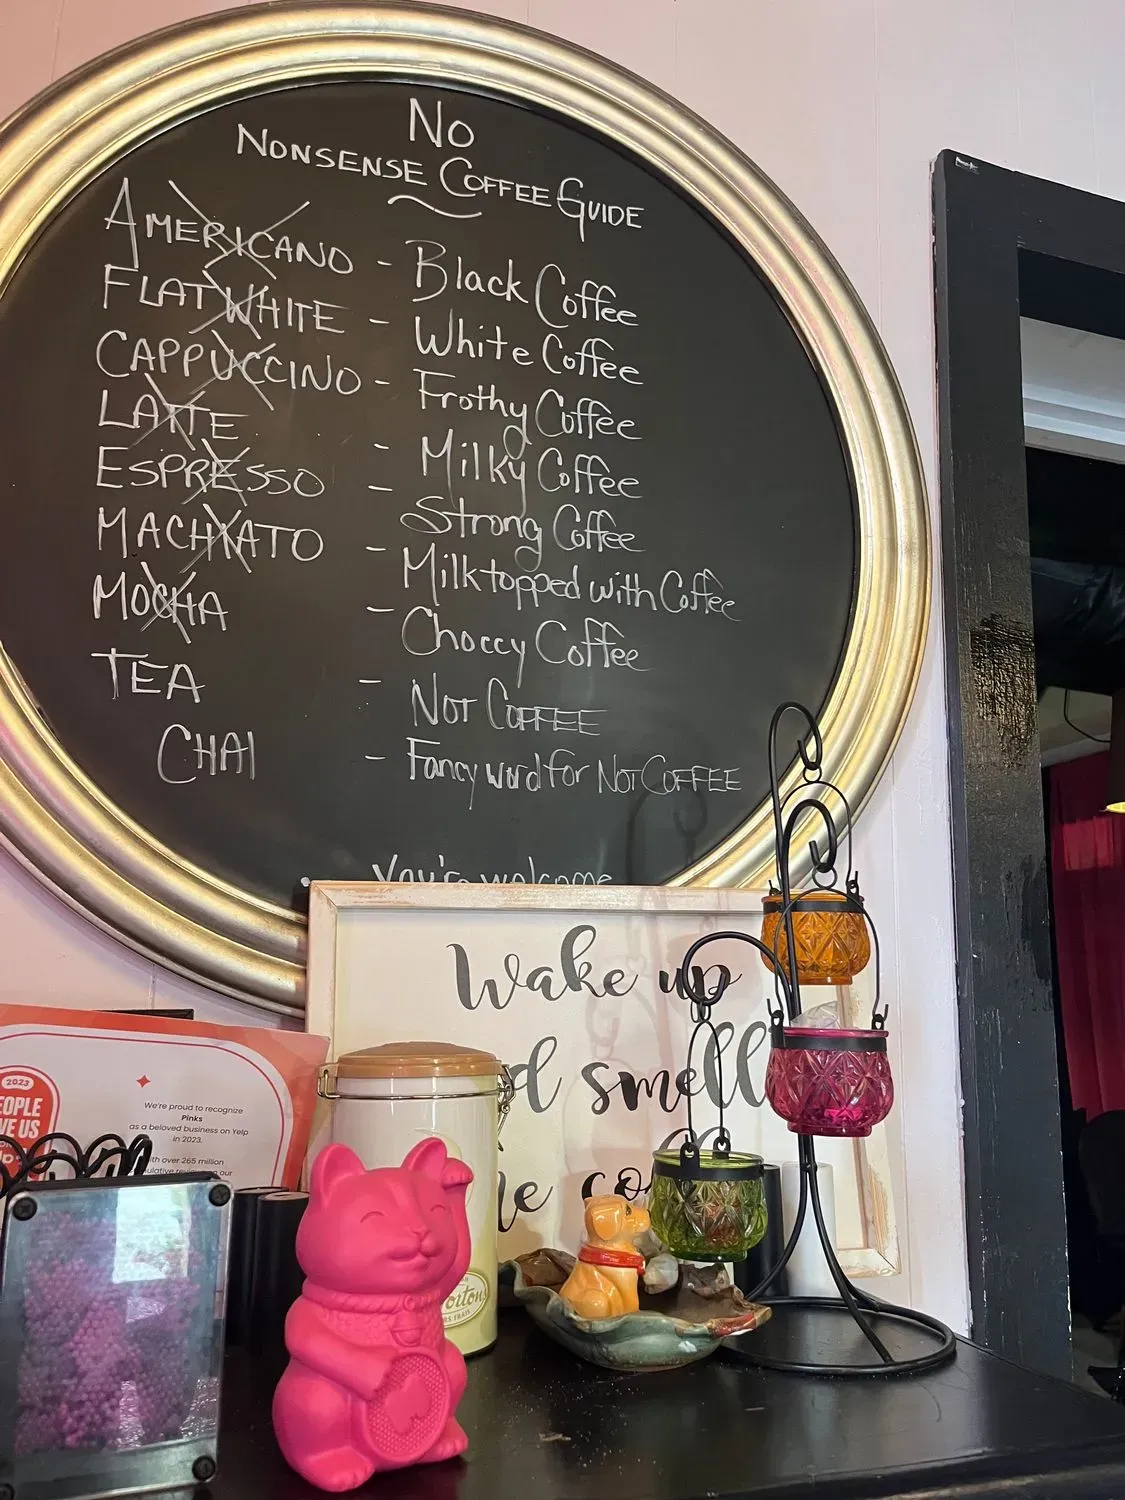 No
NONSENSE COFFEE GUIDE
AMERICANO - Black Coffee
FLAT WHITE - White Coffee
CAPPUCCINO - Frothy Coffee
LATTE - Milky Coffee
ESPRESSO - Strong Coffee
MACHIATO - Milk topped with Coffee
MOCHA - Choccy Coffee
TEA - NOT COFFEE
CHAI - Fancy word for NOT COFFEE
you're welcome
Wake up
smell
2023
We're proud to recognize
Pinks
as a beloved business on Yelp
in 2023.
over 265 million
our